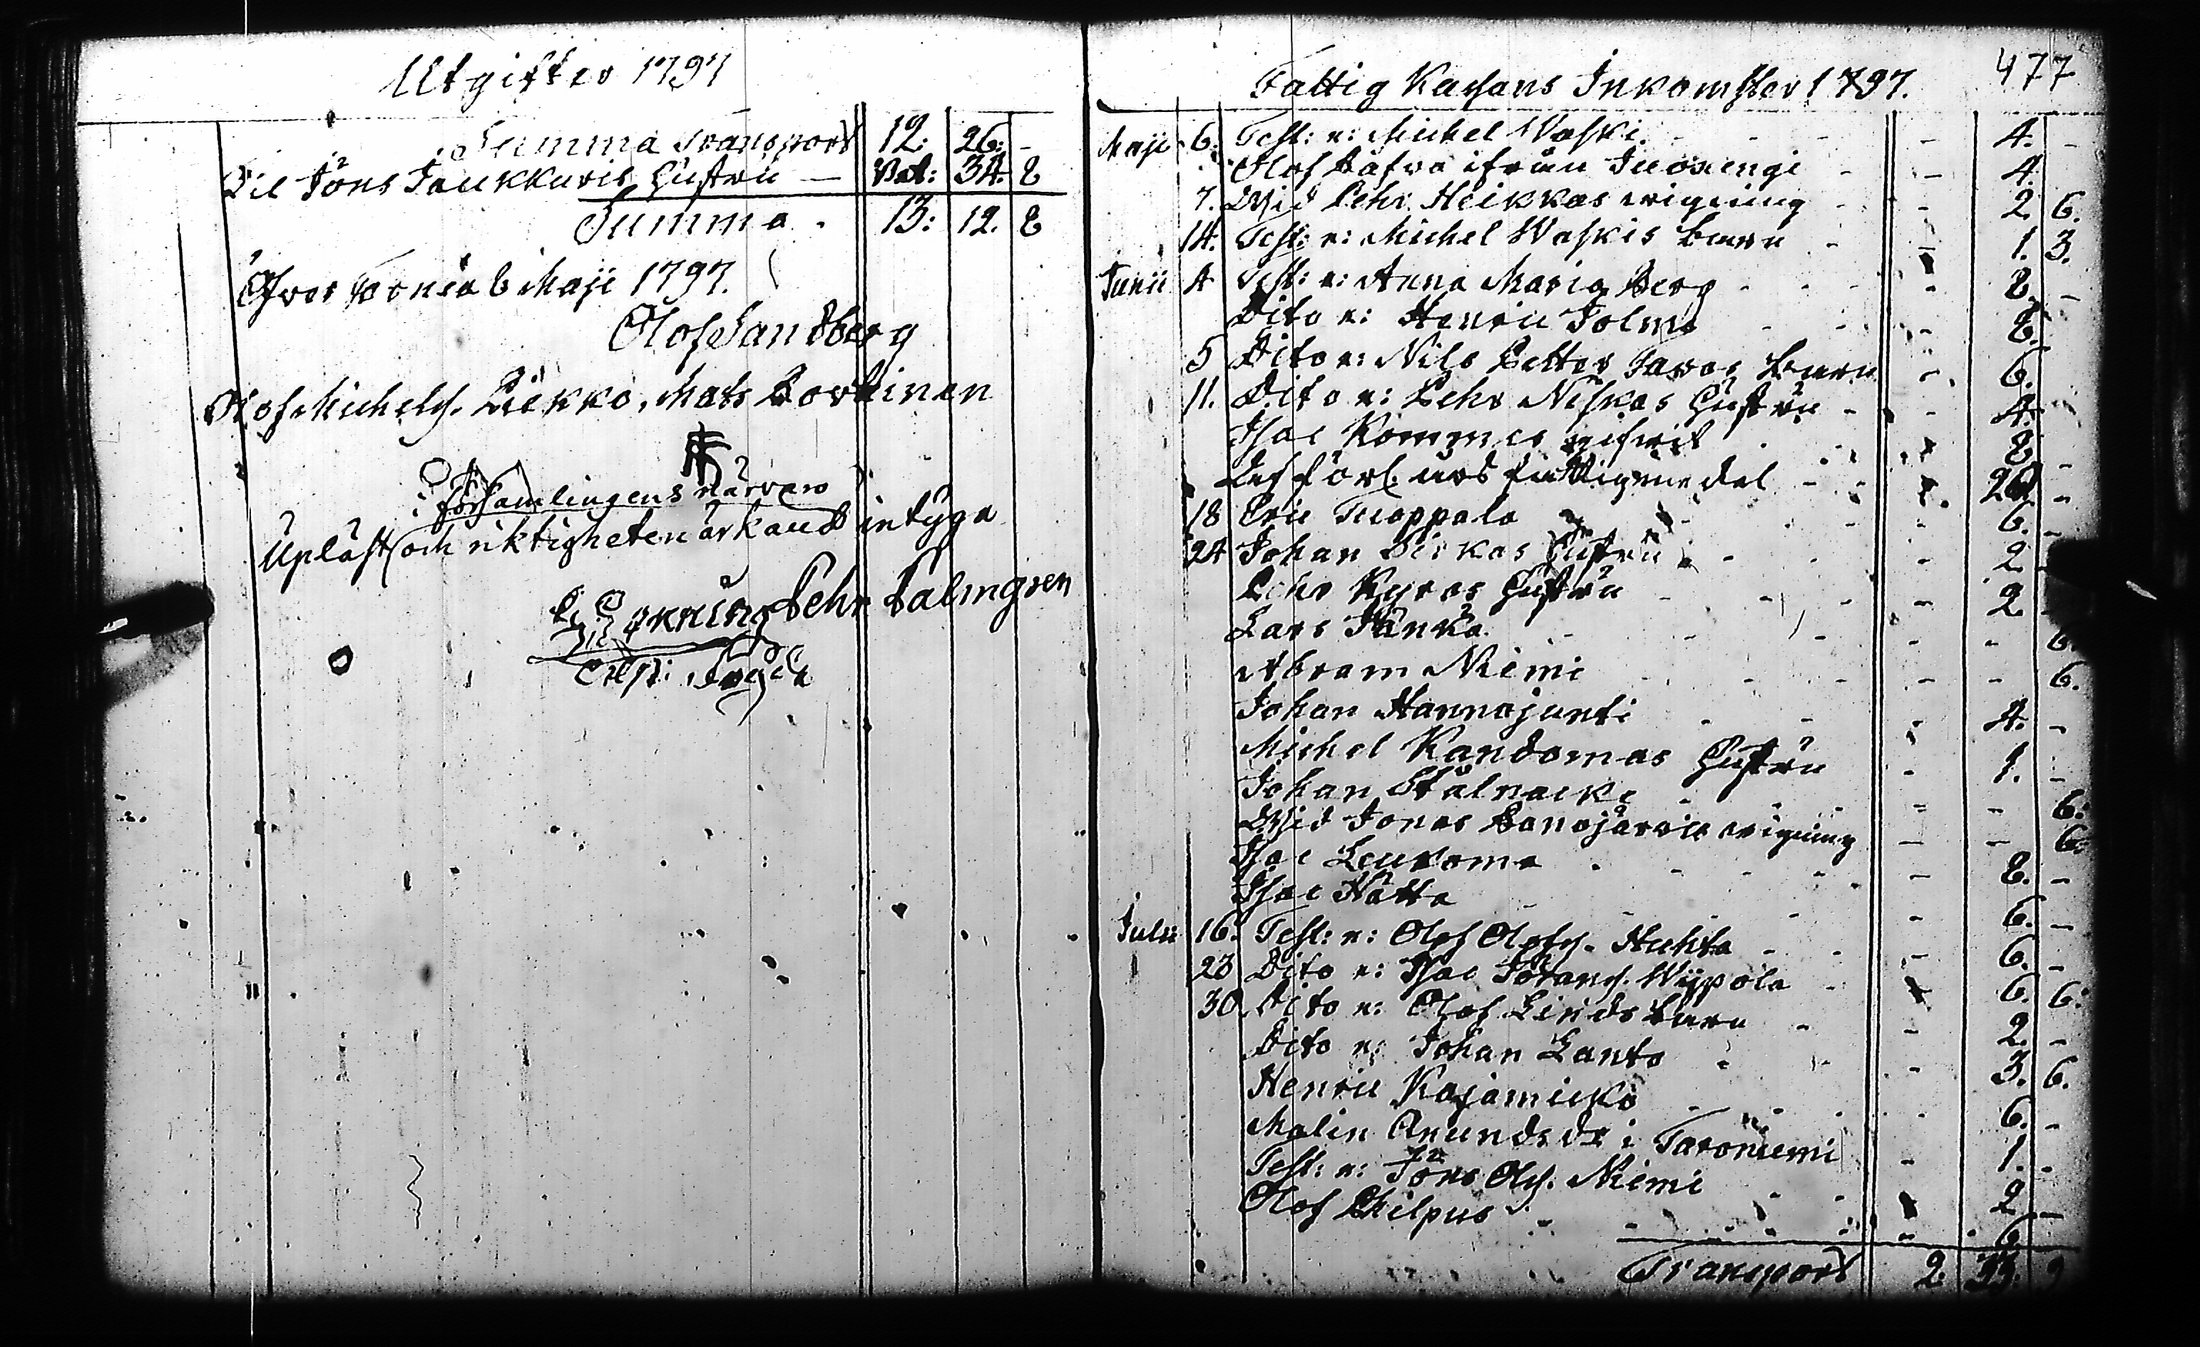 Utgifter 1797
Summa Transport 12: 26: -
Til Jöns Jaukkuris Hustru — 34. 8
Summa. 13: 12. 8
Öfver Torneå 6 Maji 1797.
Olof Sandberg
Olof Michels. Liekko, Mats Portinen
i församlingens närvaro
Upläst och riktigheten ärkand intyga
Pehr Palmgren
477
Fattig Kassans Inkomster 1797.
Maji 6. Test: e: Michel Waski - - 4. -
Olof Dafva ifrån Juoxengi - - 4.
7. Wid Pehr Heikkas wigning - - 2. 6.
14. Test: e: Michel Waskis barn - - 1. 3.
Junii 4 Test: e: Anna Maria Berg - - 8. -
Dito e: Henric Tolma - - 8.
5 Dito e: Nils Petter barn - 6.
11. Dito e: Pehr Niskas Hustru - - 4.
Isac Kommes - 8. -
fattigmedel - - 24. -
18 Eric Tuoppala - 6. -
24 Johan Hustru - - 2
Pehr Kyrös Hustru - - 2
Lars Hanka - - 6.
Abram Niemi - - 6.
Johan Hannojunti - - 4. -
Michel Kandomas Hustru - 1. -
Johan Stålnacke - - 6:
Wid Jonas wigning - - 6:
Isac Leukoma - - 8. -
Isac Hatta - - 6. -
Julii 16. Test: e: Olof Olofs. Huhta - - 6. -
23 Dito e: Isac Johans. Wypola - 6. 6:
30. Dito e: Olof Linds barn - - 2. -
Dito e: Johan Lanto - - 3. 6.
Henric Kojamicko - - 6. -
Malin i Taroniemi - 1. -
Test: e: Jöns Ols. Niemi - - 2 -
Olof Philpus - - 6
Transport 2. 33. 9